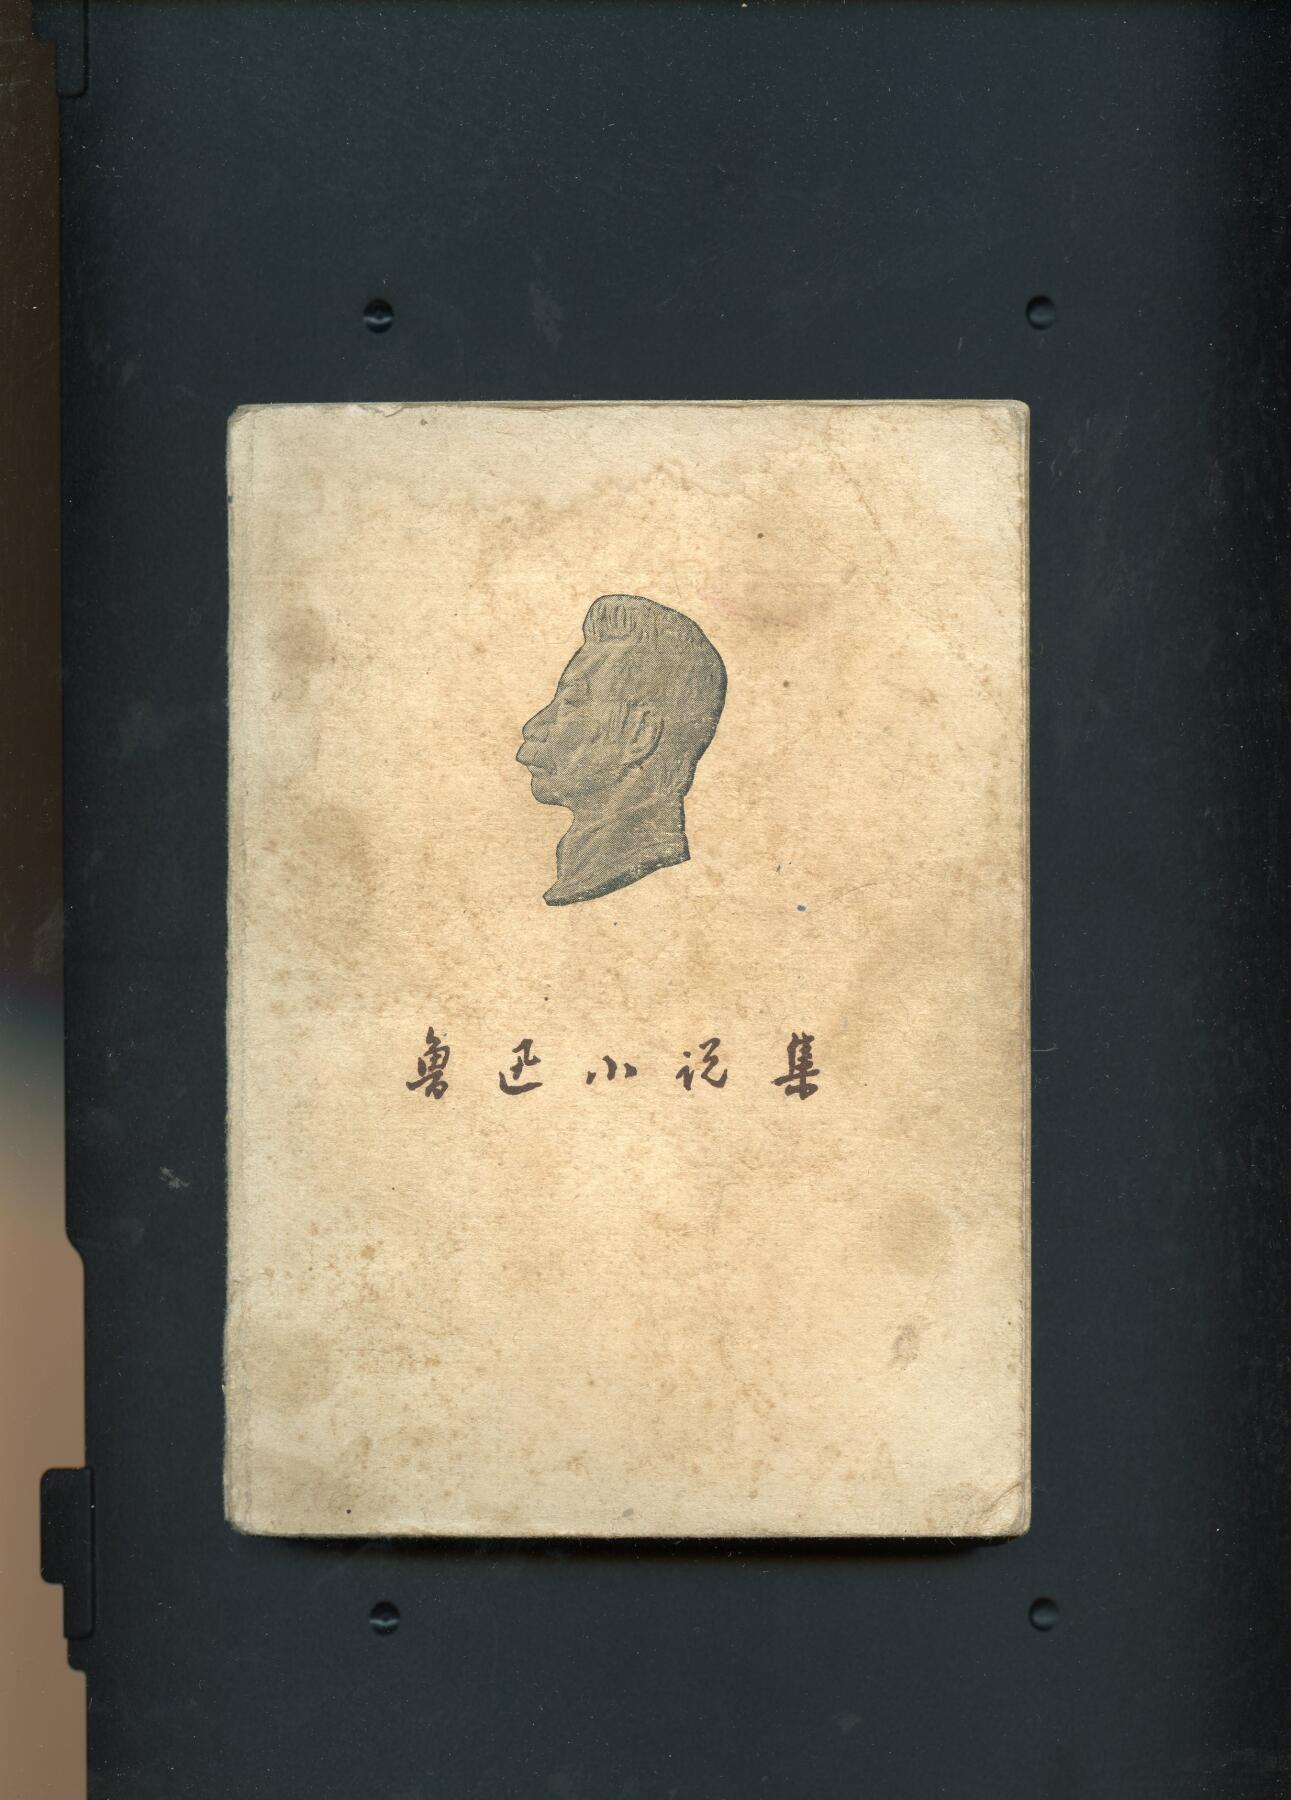 鲁迅小说集